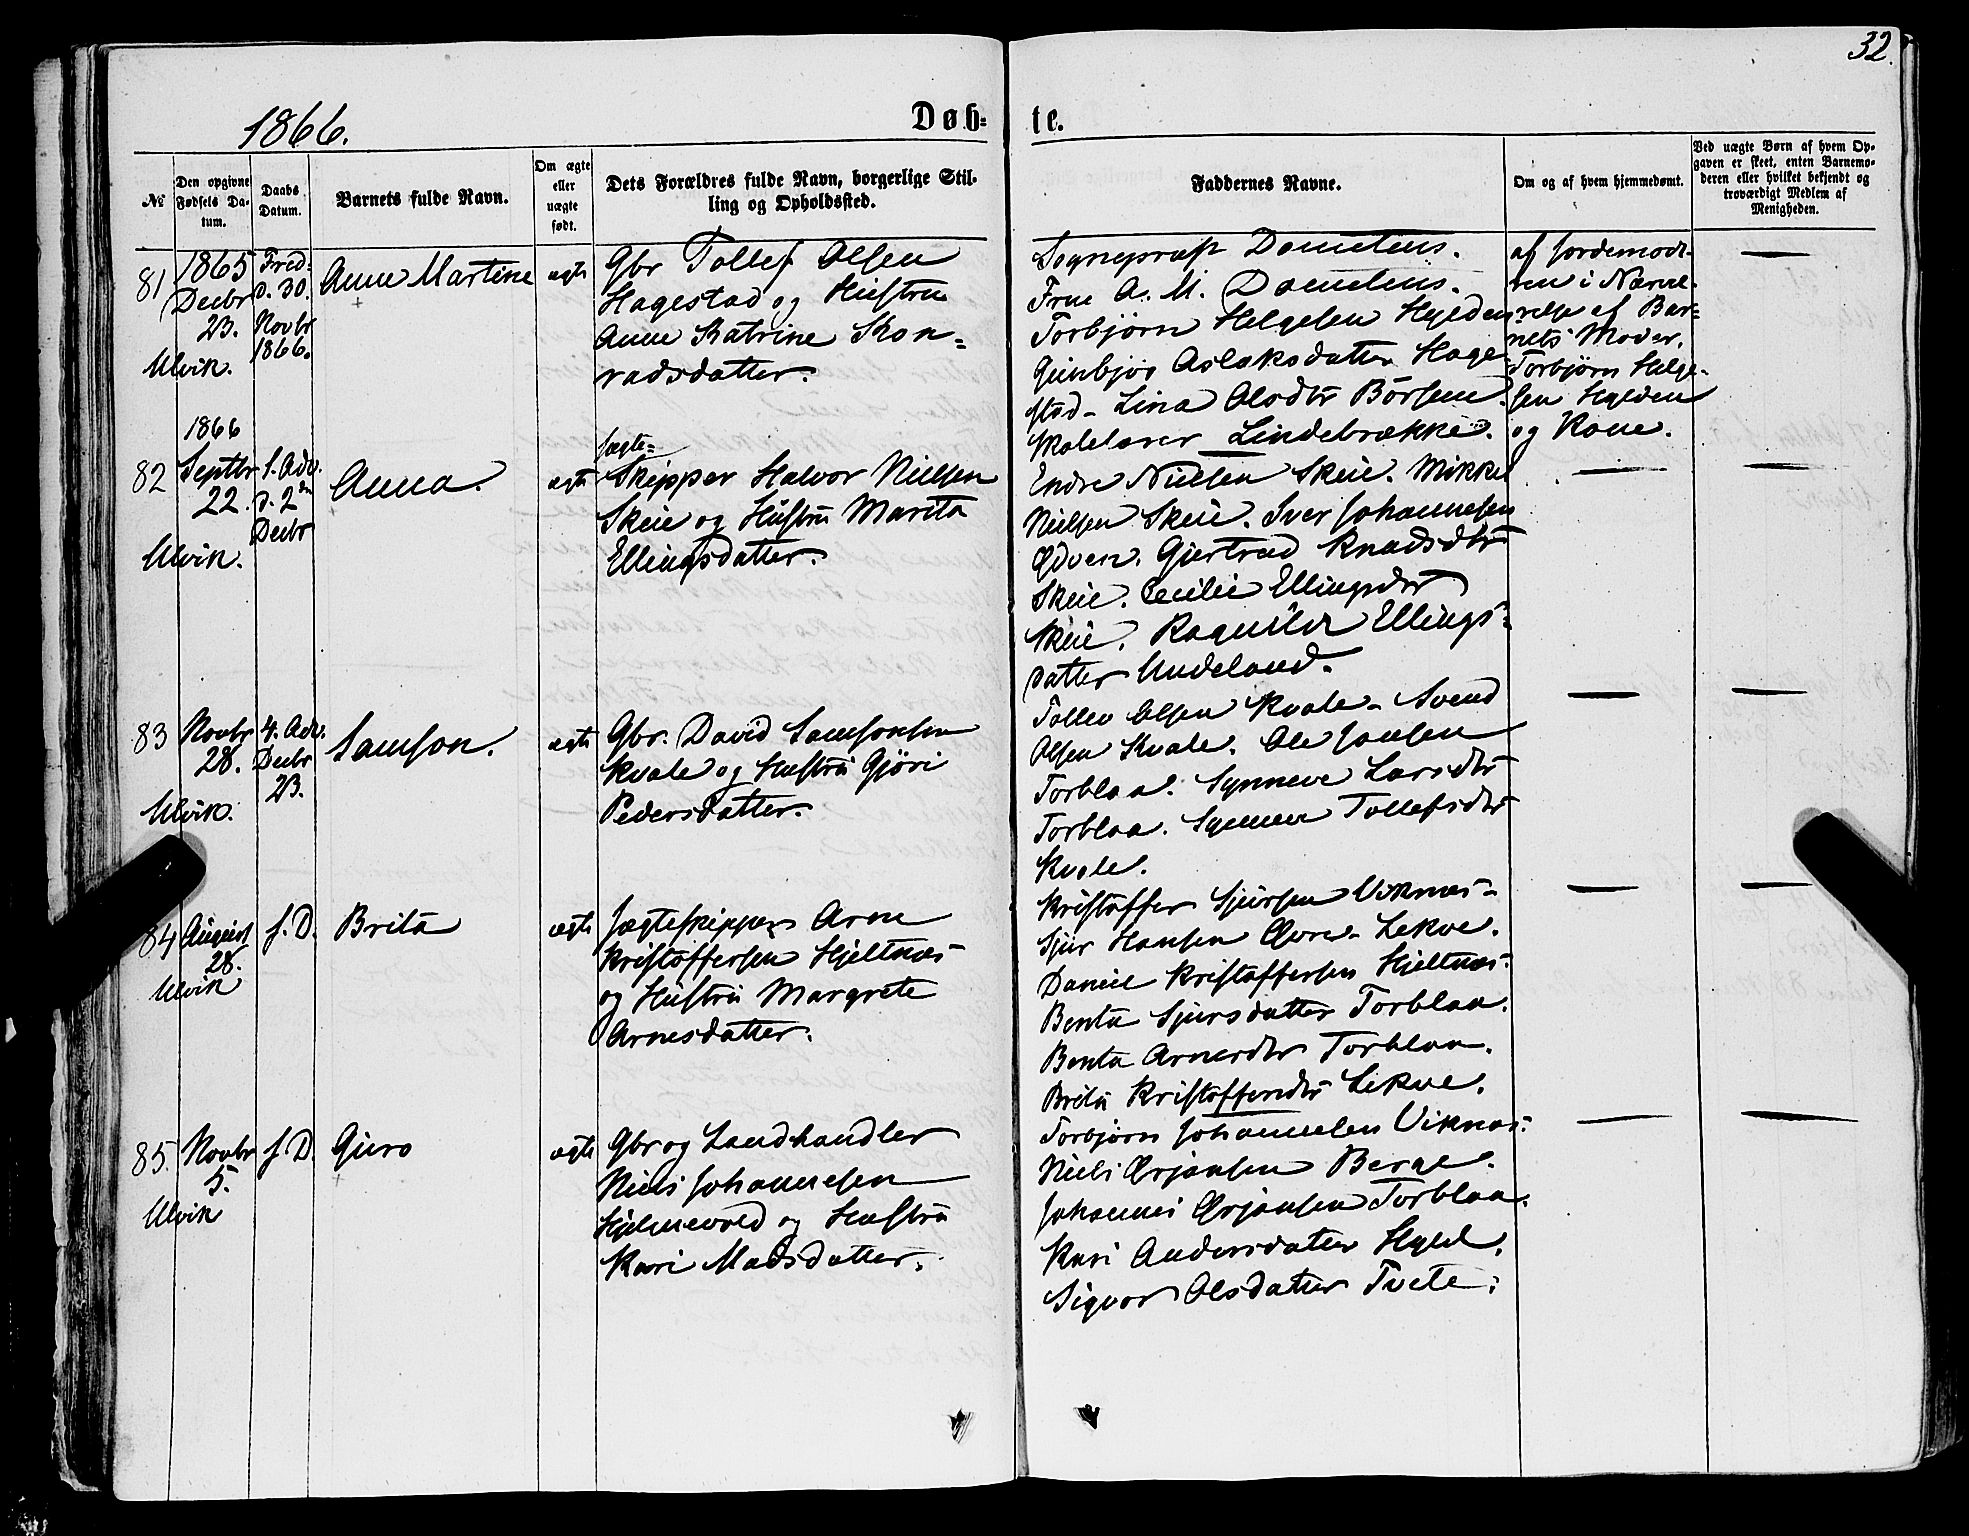 32.
1866.
Døb= te.
№
Den opgivne Fødsels Da-tum.
Daabs Datum.
Barnets fulde Navn.
Om ægte eller uægte født.
Dets Forældres fulde Navn, borgerlige Stil-
ling og Opholdssted.
Faddernes Navne.
Om og af hvem hjemmedøbt.
Ved uægte Børn af hvem Op-
gaven er skeet, enten Barnemo-
deren eller hvilket bekjendt og
troværdigt Medlem af
Menigheden.
81
1865
Decbr
23.
Ulvik.
Fred=
d. 30.
Novbr
1866.
Anne Martine
ægte
Gbr Tollef Olsen
Hagestad og Hustru
Anne Katrine Kon=
radsdatter.
Sogneprest
Frue A. M.
Torbjørn Helgesen Hylden
Gunbjør Aslaksdatter Hage=
stad - Lina Olsdtr Börsem.
Skolelærer Lindebrække.
af Jordemod-
ren i Nærvæ-
relse af Bar=
nets Moder,
Torbjørn Helge-
sen Hylden
og Kone.
82
1866
Septbr
22.
Ulvik.
1. Adv.
d. 2den
Decbr
Anna.
ægte
Jægte=
Skipper Halvor Nielsen
Skeie og Hustru Marita
Ellingsdatter.
Endre Nielsen Skeie. Mikkel
Nielsen Skeie. Iver Johannesen
Ødven. Gjertrud Knudsdtr
Skeie. Cecilie Ellingsdtr
Skeie. Ragnilda Ellings=
datter Undeland.
83
Novbr
28.
Ulvik.
4. Adv.
Decbr
23.
Samson.
ægte
Gbr. David Samsonsen
Kvale og Hustru Gjöri
Pedersdatter.
Tollev Olsen Kvale - Svend
Olsen Kvale. Ole Jonsen
Torblaa. Synneve Larsdtr
Torblaa. Synneve Tollefsdtr
Kvale.
84
August
28.
Ulvik
s. D.
Brita
ægte
Jægteskipper Arne
Kristoffersen Hjeltnæs
og Hustru Margrete
Arnesdatter.
Kristoffer Sjursen Viknæs -
Sjur Hansen Øvre - Lekve.
Daniel Kristoffersen Hjeltnæs.
Benta Sjursdatter Torblaa.
Benta Arnesdtr Torblaa.
Brita Kristoffersdtr Lekve.
85.
Novbr
5.
Ulvik
s. D.
Guro
ægte
Gbr og Landhandler
Niels Johannesen
Hjelmevold og Hustru
Kari Madsdatter.
Torbjørn Johannesen Viknæs.
Niels Ørjansen Berge.
Johannes Ørjansen Torblaa.
Kari Andersdatter Hyld.
Sigvor Olsdatter Tveite.